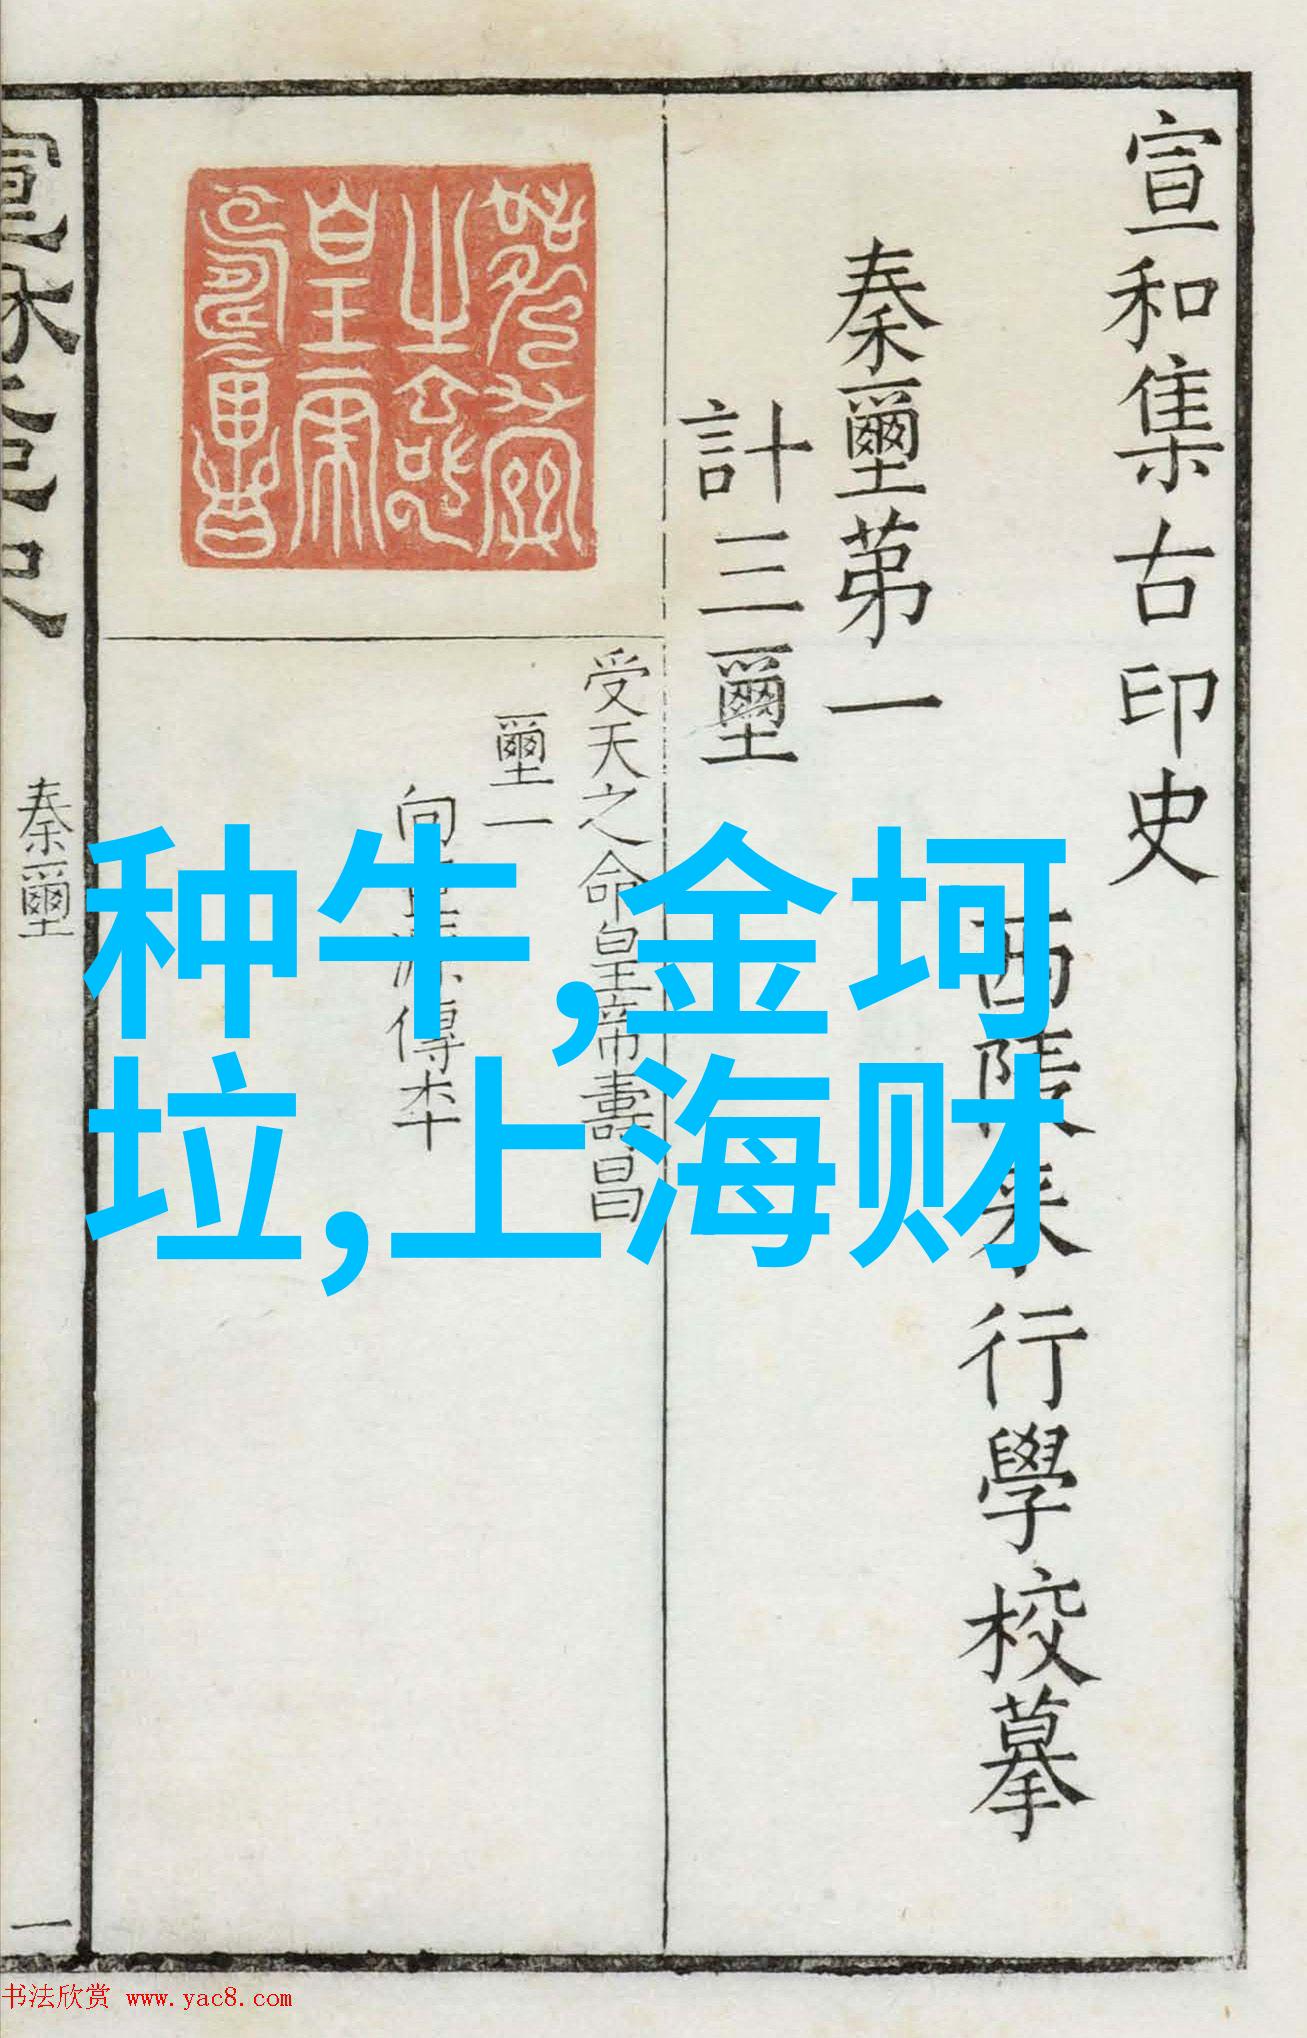 宣和集古印史
西陵来行學校摹
秦璽第一
計三璽
受天之命皇帝壽昌
璽一
向
傳本
秦璽
一
种牛,金坷
垃,上海财
书法欣赏 www.yac8.com